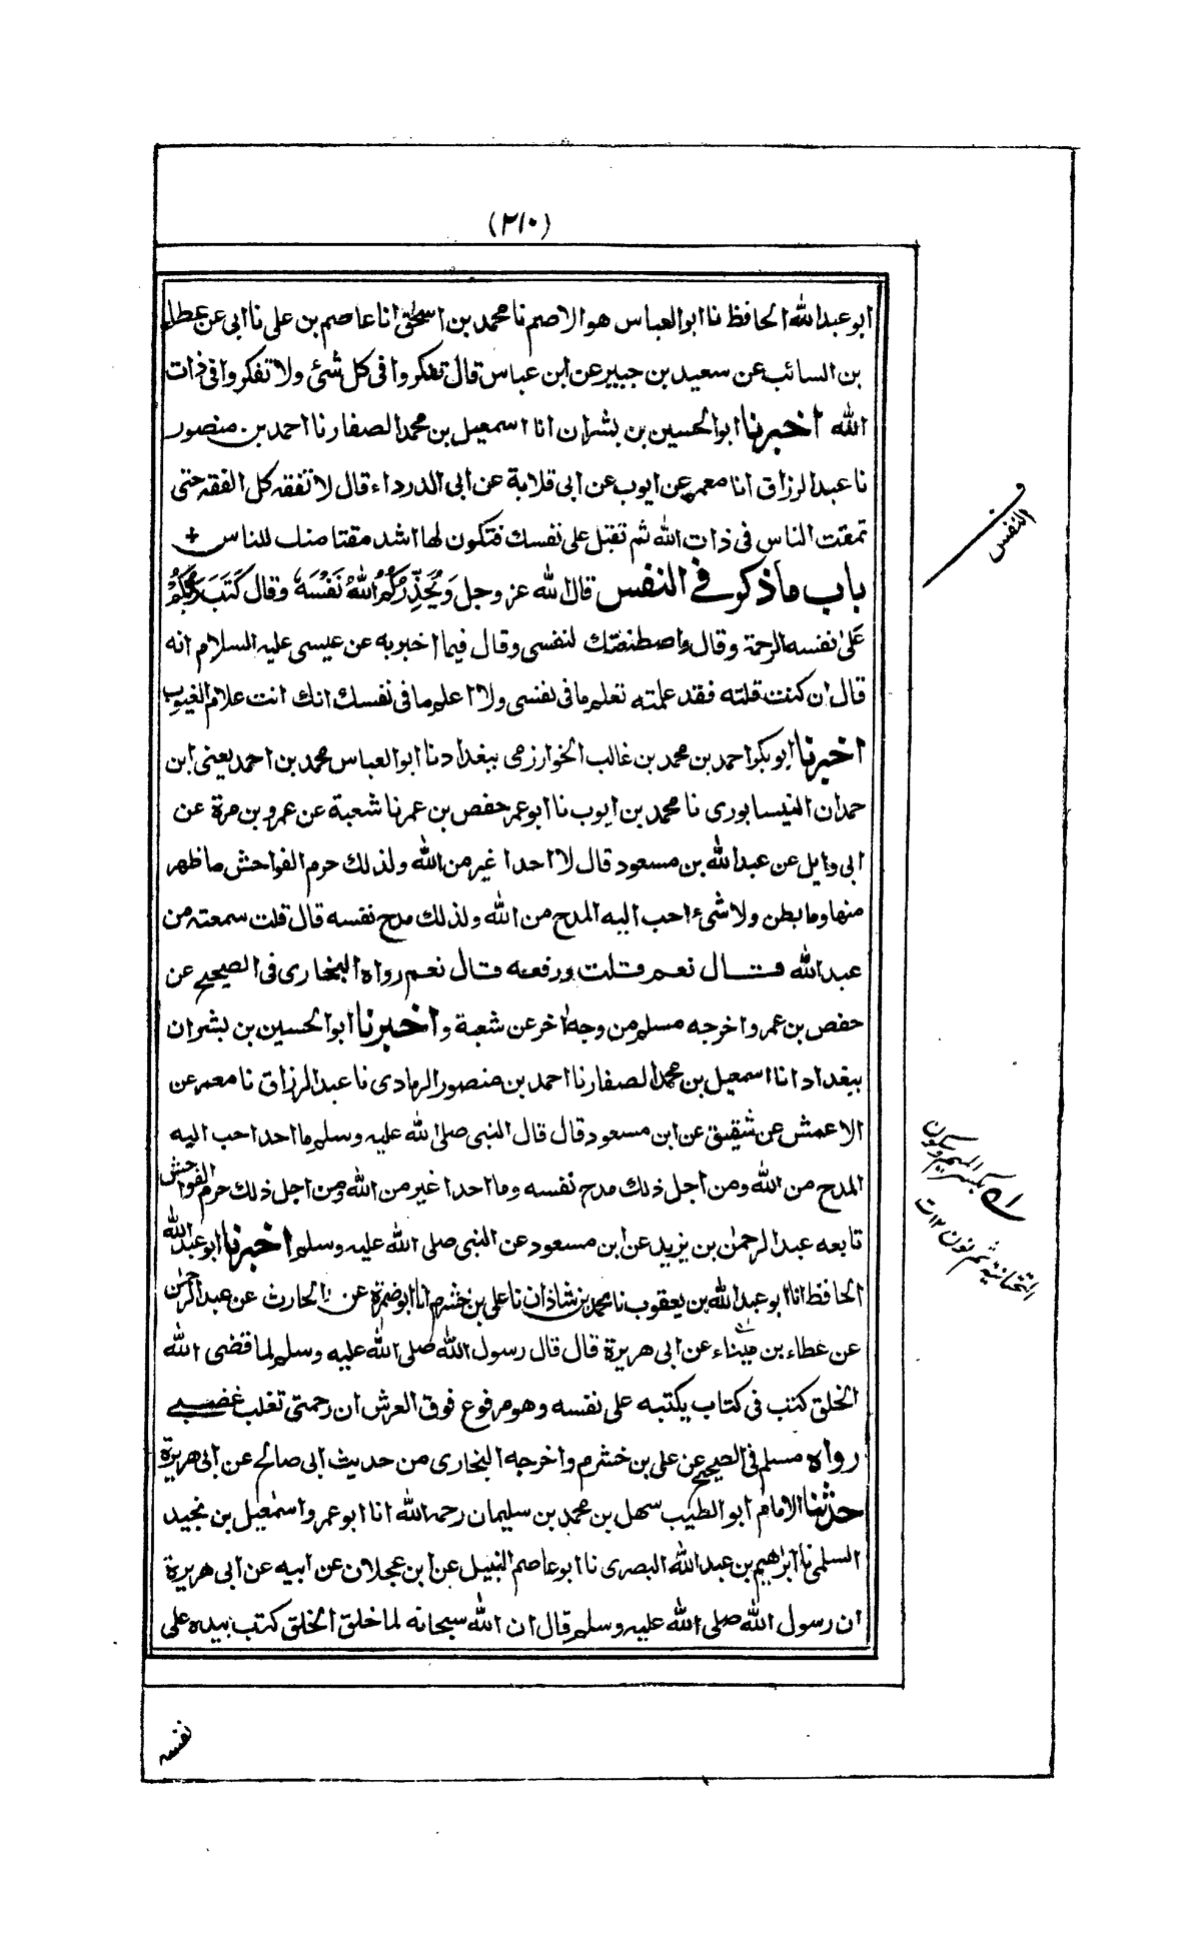 (٢١٠)
ابو عبد الله الحافظ نا ابو العباس هو الاصم نا محمد بن اسحٰق انا عاصم بن علی نا ابی عن عطاء
بن السائب عن سعيد بن جبير عن ابن عباس قال تفكروا فی كل شیٔ ولا تفكروا فی ذات
الله اخبرنا ابو الحسين بن بشران انا اسمعيل بن محمد الصفار نا احمد بن منصور
نا عبد الرزاق انا معمر عن ايوب عن ابی قلابة عن ابی الدرداء قال لا تفقه كل الفقه حتی
تمقت الناس فی ذات الله ثم تقبل علی نفسك فتكون لها اشد مقتا منك للناس +
باب ما ذكر فی النفس قال الله عز وجل وَيُحَذِّرُكُمُ اللهُ نَفْسَهٗ وقال كَتَبَ رَبُّكُمْ
عَلٰی نفسه الرحمة وقال واصطنعتك لنفسی وقال فيما اخبر به عن عيسی عليه السلام انه
قال ان كنت قلته فقد علمته تعلم ما فی نفسی ولا اعلم ما فی نفسك انك انت علام الغيوب
اخبرنا ابو بكر احمد بن محمد بن غالب الخوارزمی ببغداد نا ابو العباس محمد بن احمد يعنی ابن
حمدان النيسابوری نا محمد بن ايوب نا ابو عمر حفص بن عمر نا شعبة عن عمرو بن مرة عن
ابی وايل عن عبد الله بن مسعود قال لا احدا غير من الله ولذلك حرم الفواحش ما ظهر
منها وما بطن ولا شیء احب اليه المدح من الله ولذلك مدح نفسه قال قلت سمعته من
عبد الله قال نعم قلت ورفعه قال نعم رواه البخاری فی الصحيح عن
حفص بن عمر واخرجه مسلم من وجه اخر عن شعبة واخبرنا ابو الحسين بن بشران
ببغداد انا اسمعيل بن محمد الصفار نا احمد بن منصور الرمادی نا عبد الرزاق نا معمر عن
الاعمش عن شقيق عن ابن مسعود قال قال النبی صلی الله عليه وسلم ما احد احب اليه
المدح من الله ومن اجل ذلك مدح نفسه وما احدا غير من الله ومن اجل ذلك حرم الفواحش
تابعه عبد الرحمٰن بن يزيد عن ابن مسعود عن النبی صلی الله عليه وسلم اخبرنا ابو عبد الله
الحافظ انا ابو عبد الله بن يعقوب نا محمد بن شاذان نا علی بن خشرم انا ابو ضمرة عن الحارث عن عبد الرحمٰن
عن عطاء بن ميناء عن ابی هريرة قال قال رسول الله صلی الله عليه وسلم لما قضی الله
الخلق كتب فی كتاب يكتبه علی نفسه وهو مرفوع فوق العرش ان رحمتی تغلب غضبی
رواه مسلم فی الصحيح عن علی بن خشرم واخرجه البخاری من حديث ابی صالح عن ابی هريرة
حدثنا الامام ابو الطيب سهل بن محمد بن سليمان رحمه الله انا ابو عمرو اسمٰعيل بن نجيد
السلمی نا ابرٰهيم بن عبد الله البصری نا ابو عاصم النبيل عن ابن عجلان عن ابيه عن ابی هريرة
ان رسول الله صلی الله عليه وسلم قال ان الله سبحانه لما خلق الخلق كتب بيده علی
نفسه
النفس
بكسر الميم وسكون
التحتانية ثم نون ١٢